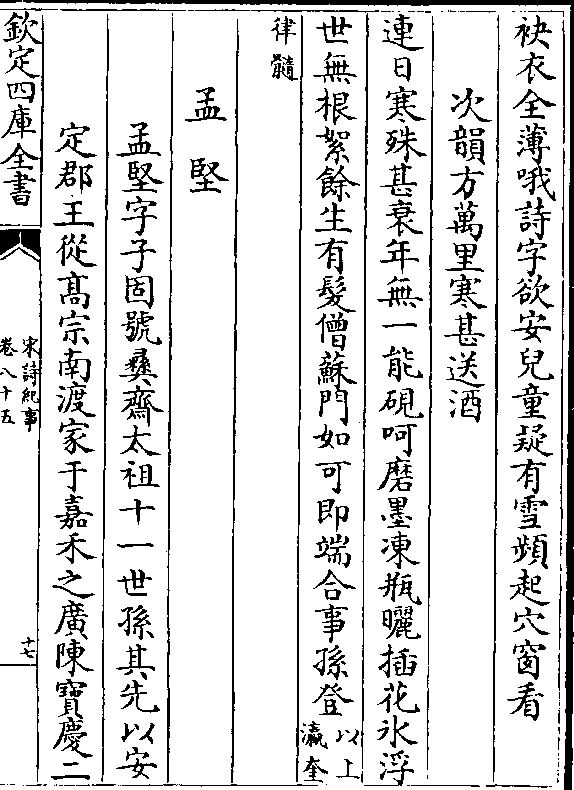 袂衣全薄哦詩字欲安兒童疑有雪頻起穴窗看
次韻方萬里寒甚送酒
連日寒殊甚衰年無一能硯呵磨墨凍瓶曬插花氷浮
世無根絮餘生有髮僧蘇門如可即端合事孫登以上瀛奎
律髓
孟堅
孟堅字子固號彝齋太祖十一世孫其先以安
定郡王從髙宗南渡家于嘉禾之廣陳寶慶二
欽定四庫全書
宋詩紀事
卷八十五
十七